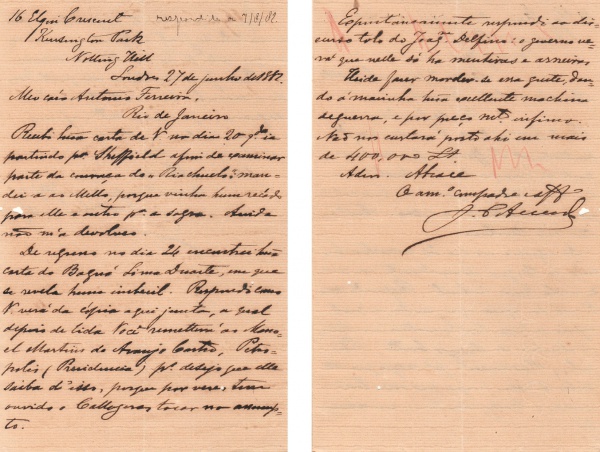 16 Elgin Crescent
respondido a 7/8/82.
Kensington Park
Notting Hill
London 27 de junho de 1882.
Meu caro Antonio Ferreira,
Rio de Janeiro
Recebi huma carta de V. no dia 20 qdo ia
partindo pa Sheffield afim de examinar
parte da couraça do "Riachuelo"; man-
dei a ao Mello, porque vinha hum recado
para elle e outro pa a sogra. Ainda
não m'a devolveo.
De regresso no dia 24 encontrei huma
carta do Lima Duarte, em que
se revela hum imbecil. Respondi como
V. verá da cópia aqui junta, a qual
depois de lida Você remetterá ao Mano-
el Martins de Araujo Castro, Petro-
polis (Presidencia) pa desejo que elle
saiba d'isso, porque por vezes, tem
ouvido o Callogeras tocar no assump-
to.
Espontaneamente respondi ao dis-
curso tolo do Joaqm Delfino: o governo ve-
rá que nelle só ha mentiras e asneiras
Heide fazer morder-se essa gente, dan-
do á marinha huma excellente machina
de guerra, e por preço mto infimo.
Não nos custará posto ahi em mais
de 400.000 £.
Adeus. Abrace
O amo compadre e